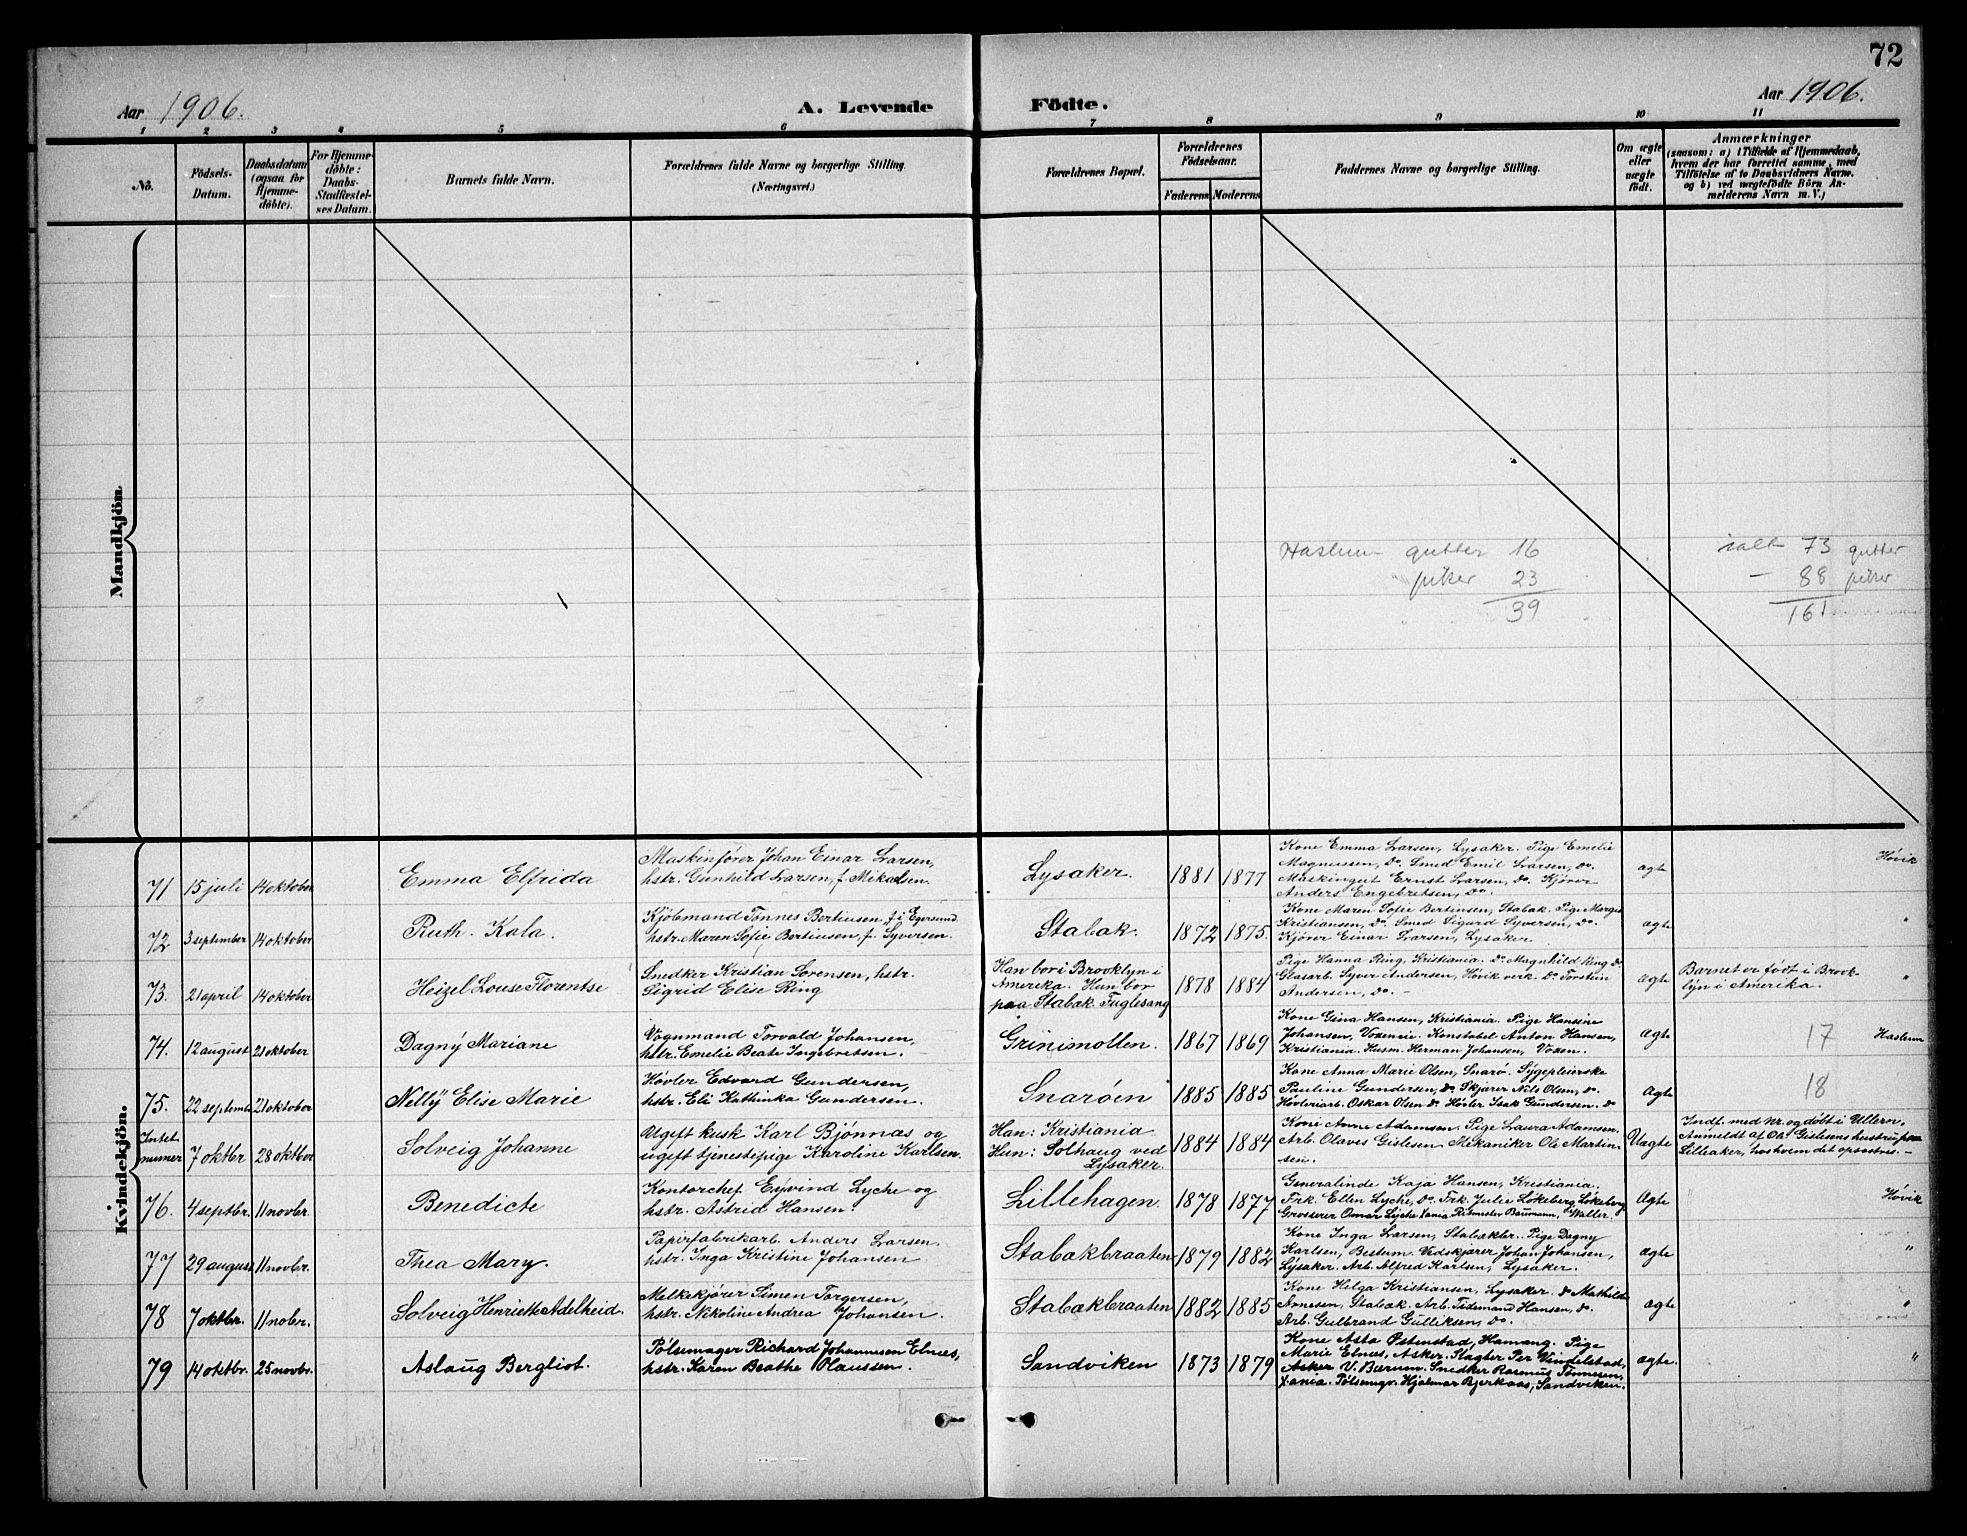 72
Aar 1906. A. Levende Födte. Aar 1906.
1 2 3 4 5 6 7 8 9 10 11
No.
Födsels-
Datum.
Daabsdatum
(ogsaa for
Hjemme-
döbte).
For Hjemme-
döbte:
Daabs-
Stadfæstel-
ses Datum.
Barnets fulde Navn.
Forældrenes fulde Navne og borgerlige Stilling.
(Næringsvei.)
Forældrenes Bopæl.
Forældrenes
Födselsaar.
Faderens Moderens
Faddernes Navne og borgerlige Stilling.
Om ægte
eller
uægte
födt.
Anmærkninger
(saasom: a) i Tilfælde af Hjemmedaab,
hvem der har forrettet samme, med
Tilföielse af to Daabsvidners Navne.
og b) ved uægtefödte Börn An-
melderens Navn m. V.)
Mandkjön.
Haslum gutter 16
" piker 23
39
ialt 73 gutter
- 88 piker
161
Kvindekjön.
71 15 juli 14 oktober
Emma Elfrida
Maskinfører Johan Einar Larsen,
hstr. Gunhild Larsen, f. Mikalsen.
Lysaker. 1881 1877
Kone Emma Larsen, Lysaker. Pige Emelie
Magnussen, do. Smed Emil Larsen, do.
Maskingut Ernst Larsen, do. Kjører
Anders Engebretsen, do.
ægte
Høvik
72 3 september 14 oktober
Ruth. Kala.
Kjøbmand Tønnes Bertinsen f. i Egersund
hstr. Maren Sofie Bertinsen f. Syversen.
Stabak. 1872 1875.
Kone Maren Sofie Bertinsen, Stabak. Pige Margit
Kristiansen, do. Smed Sigurd Syversen, do.
Kjører Einar Larsen, Lysaker.
ægte
"
73. 21 april 14 oktober
Heizel Louse Florentse
Snedker Kristian Sørensen, hstr.
Sigrid Elise Ring
Han bor i Brooklyn i
Amerika. Hun bor
paa Stabak Fuglesang
1878 1884
Pige Hanna Ring, Kristiania. Do. Magnhild Ring do.
Glasarb. Syver Andersen, Høvik verk. Do. Torstein
Andersen, do. -
ægte
Barnet er født i Brook-
lyn i Amerika.
"
74. 12 august 21 oktober
Dagny Mariane
Vognmand Torvald Johansen,
hstr. Emelie Beate Ingebretsen.
Grinimollen. 1867 1869
Kone Gina Hansen, Kristiania. Pige Hansine
Johansen, Voxeneie. Konstabel Anton Hansen,
Kristiania. Husm. Herman Johansen, Voxen.
ægte
17
Haslum
75. 22 septembr 21 oktober
Nelly Elise Marie
Høvler Edvard Gundersen,
hstr. Eli Kathinka Gundersen.
Snarøen 1885 1885
Kone Anna Marie Olsen, Snarø. Sygepleierske
Pauline Gundersen, do. Skjører Nils Olsen, do.
Høvleriarb. Oskar Olsen do. Høvler Isak Gundersen. do
ægte
18
Intet
numer
7 oktbr 28 oktber
Solveig Johanne
Ugift kusk Karl Bjønnæs og
ugift tjenestepige Karoline Karlsen.
Han: Kristiania
Hun: Solhaug ved
Lysaker.
1884 1884
Kone Anne Adamsen. Pige Laura Adamsen.
Arb. Olaves Gislesen. Mekaniker Ole Martin-
sen.
Uægte
Indf. med Nr. og døbt i Ullern.
Anmeldt af Ol. Gislesens hustru paa
Lilleaker, hos hvem det opfostres. -
76. 4 septbr. 11 novbr.
Benedicte
Kontorchef Eyvind Lyche og
hstr. Astrid Hansen.
Lillehagen. 1878 1877
Generalinde Kaja Hansen, Kristiania.
Frk. Ellen Lyche, Do. Frk. Julie Løkeberg, Løkeberg.
Grosserer Omar Lyche Xania. Ritmester Baumann, Waller.
Ægte
Høvik
77 29 august 11 novbr.
Thea Mary.
Papirfabrikarb. Anders Larsen.
hstr. Inga Kristine Johansen
Stabækbraaten 1879 1882
Kone Inga Larsen, Stabækbr. Pige Dagny
Karlsen, Bestum. Vedskjærer Johan Johansen,
Lysaker. Arb. Alfred Karlsen, Lysaker.
ægte
"
78 7 oktbr. 11 nobr.
Solveig Henriette Adelheid.
Melkekjører Simen Torgersen,
hstr. Nikoline Andrea Johansen.
Stabækbraaten 1882 1885
Kone Helga Kristiansen, Lysaker. do Mathilde
Arnesen, Stabæk. Arb. Tidemand Hansen, do.
Arb. Gulbrand Gulliksen, do.
ægte
"
79 14 oktbr. 25 novbr.
Aslaug Bergliot.
Pølsemager Richard Johannesen Elnæs,
hstr. Karen Beathe Olaussen.
Sandviken 1873 1879
Kone Asta Østenstad, Hamang. Pige
Marie Elnæs, Asker. Slagter Per Windelstad,
Asker V. Bærum. Snedker Rasmus Tønnesen,
Xania. Pølsemgr. Hjalmar Bjerkaas, Sandviken.
ægte.
"